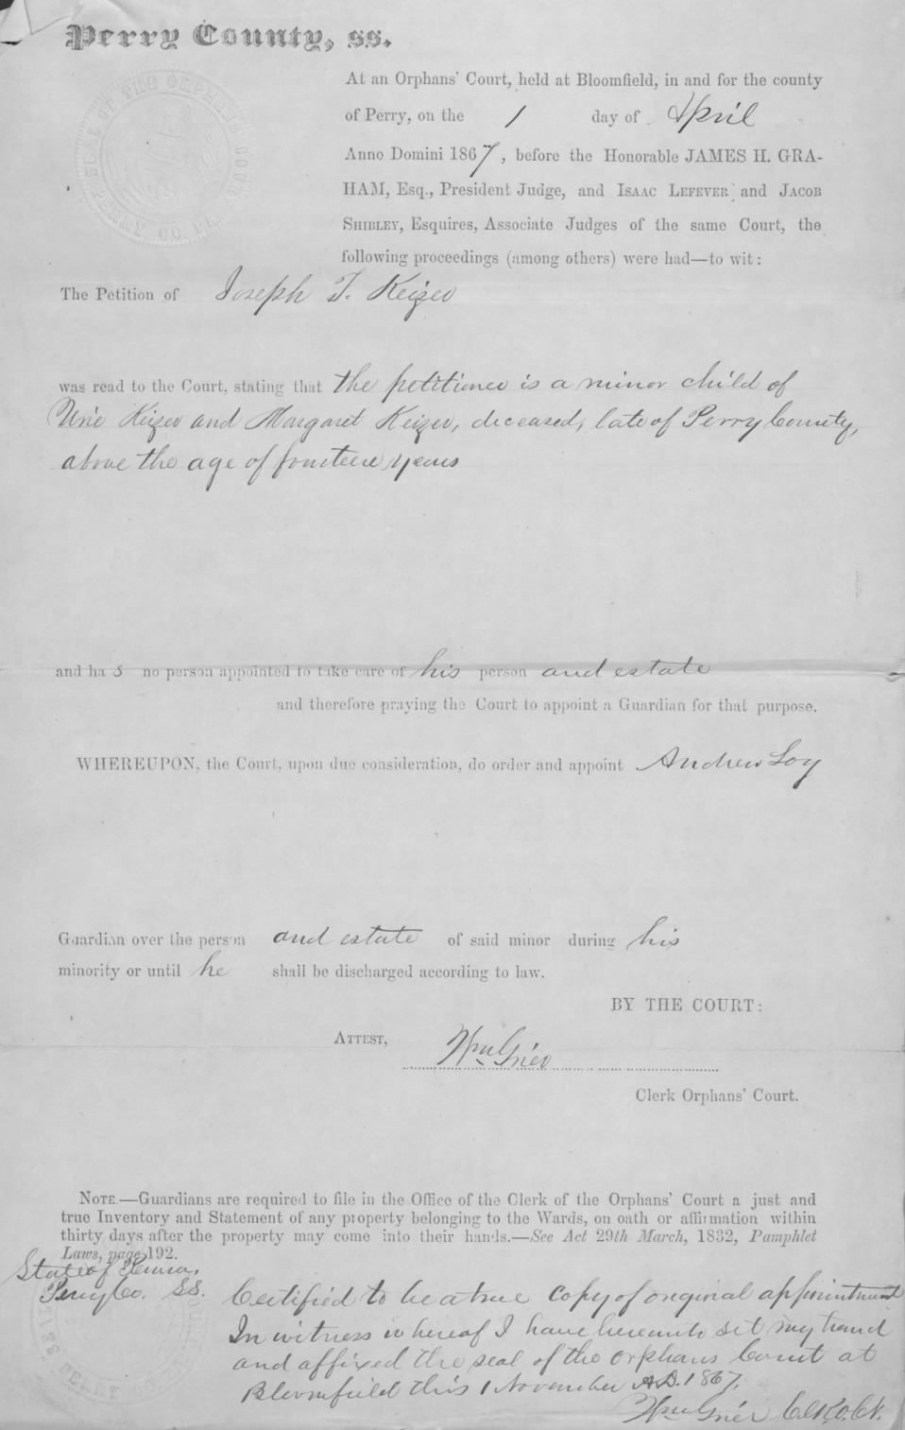 Perry County, ss.
At an Orphans' Court, held at Bloomfield, in and for the county
of Perry, on the 1 day of April
Anno Domini 1867, before the Honorable JAMES H. GRA-
HAM, Esq., President Judge, and ISAAC LEFEVER and JACOB
SHIBLEY, Esquires, Associate Judges of the same Court, the
following proceedings (among others) were had—to wit:
The Petition of Joseph T. Keizer
was read to the Court, stating that the petitioner is a minor child of
Urie Keizer and Margaret Keizer, deceased, late of Perry County,
above the age of fourteen years
and has no person appointed to take care of his person and estate
and therefore praying the Court to appoint a Guardian for that purpose.
WHEREUPON, the Court, upon due consideration, do order and appoint Andrew Loy
Guardian over the person and estate of said minor during his
minority or until he shall be discharged according to law.
BY THE COURT:
ATTEST, Wm Grier
Clerk Orphans' Court.
NOTE.—Guardians are required to file in the Office of the Clerk of the Orphans' Court a just and
true Inventory and Statement of any property belonging to the Wards, on oath or affirmation within
thirty days after the property may come into their hands.—See Act 29th March, 1832, Pamphlet
Laws, page 192.
State of Penna,
Perry Co. SS.
Certified to be a true copy of original appointment
In witness whereof I have hereunto set my hand
and affixed the seal of the Orphans Court at
Bloomfield this 1 November A.D. 1867.
Wm Grier